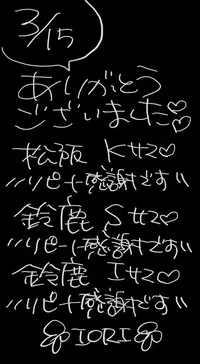 3/15
ありがとう
ございました♡♡
松阪 Kサマ♡
〃リピート感謝です〃
鈴鹿 Sサマ♡
〃リピート感謝です〃
鈴鹿 Iサマ♡
〃リピート感謝です〃
IORI